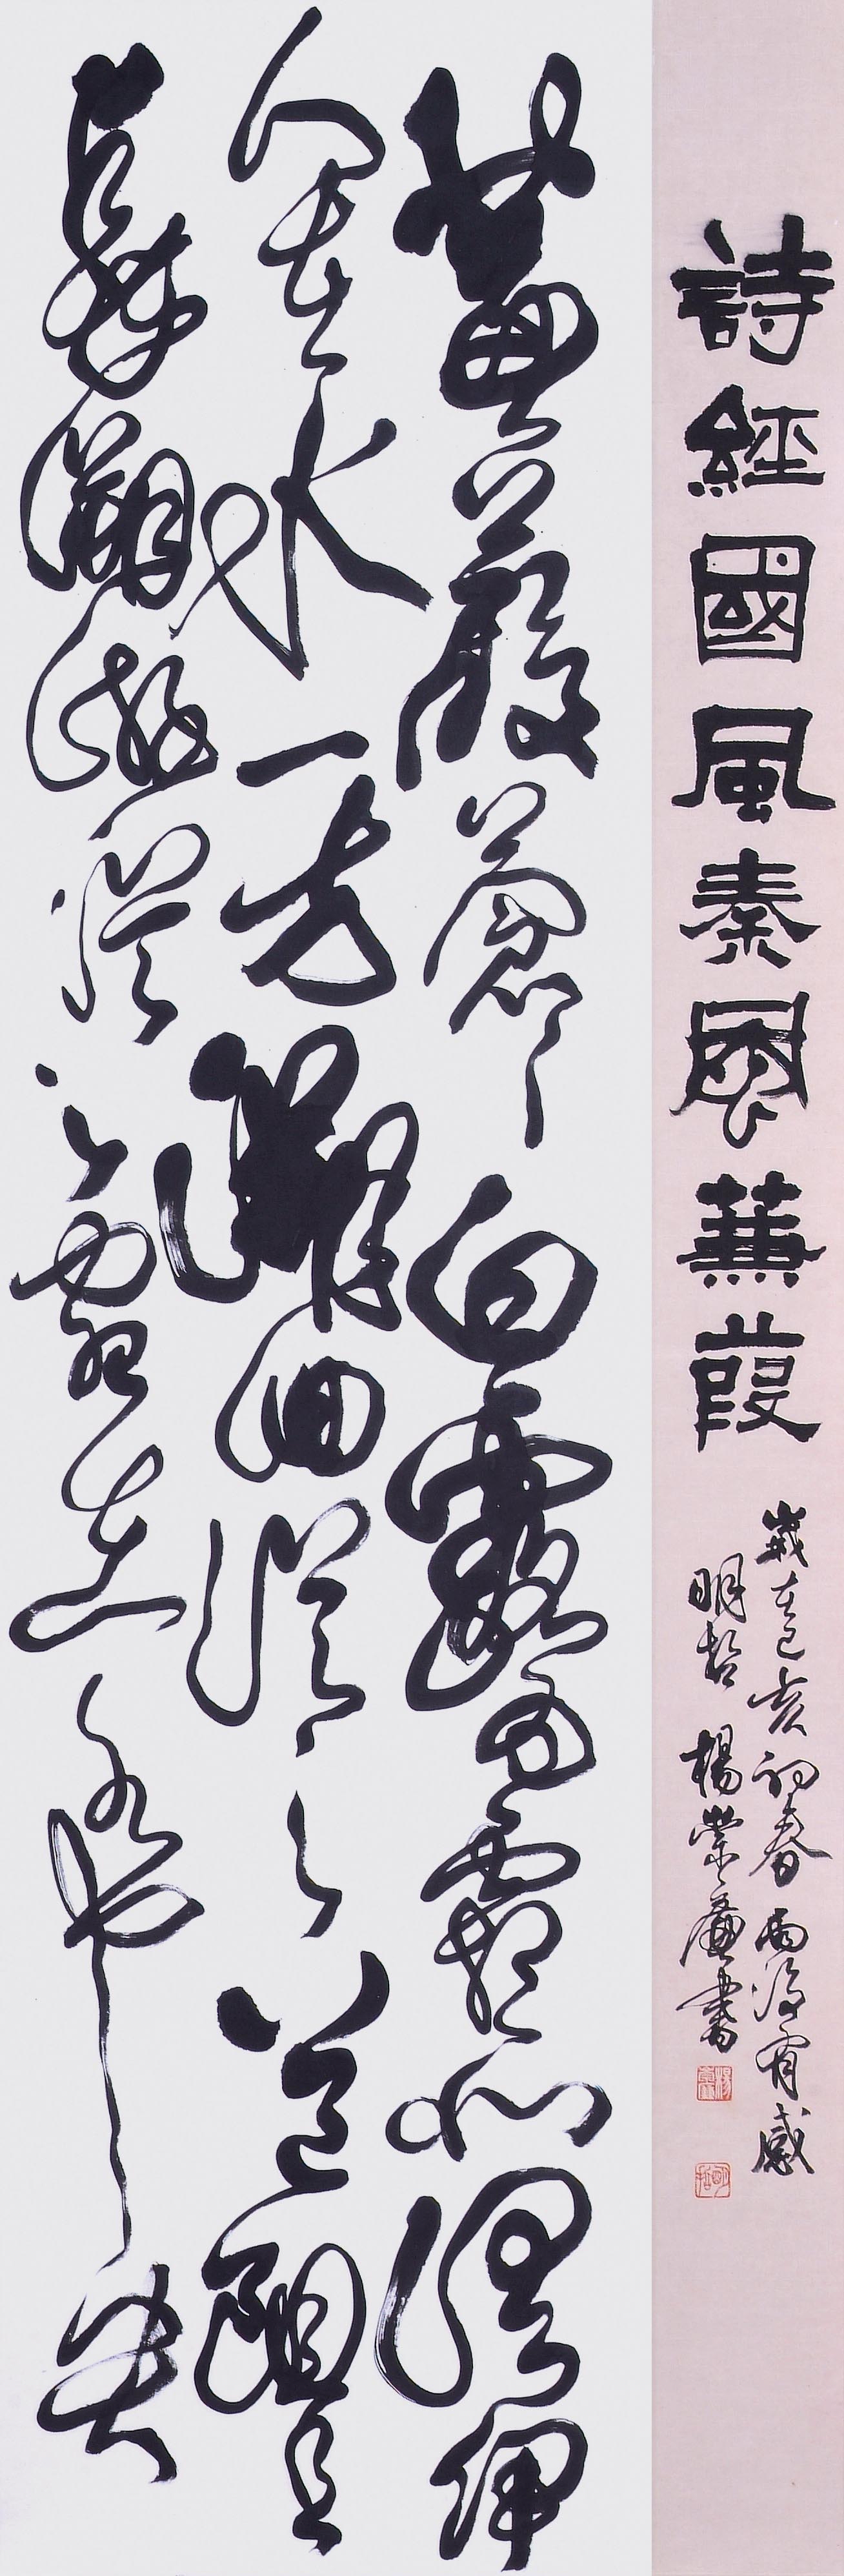 詩經國風秦風蒹葭
歲在己亥初春雨後有感
明哲 楊廉書
蒹葭蒼々白露為霜所謂伊
人在水一方溯洄從之道阻且
長溯游從之宛在水中央